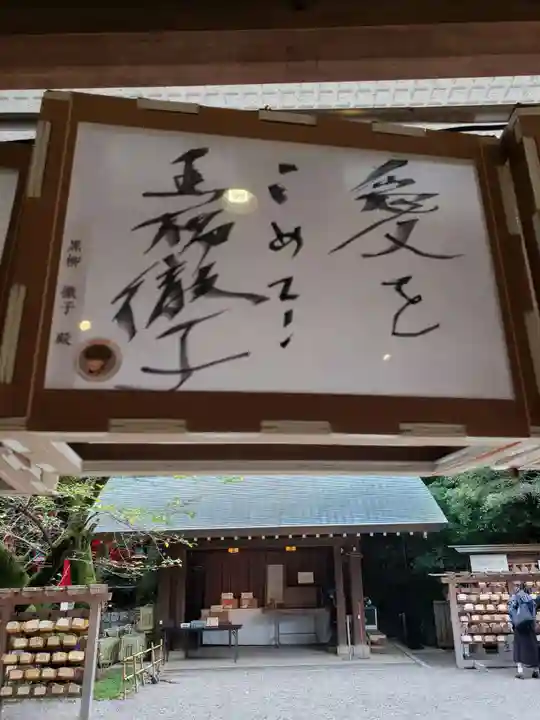 愛を
こめて!
黒柳徹子
黒柳 徹子 殿